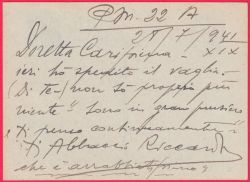 P.M. 22 A
28/7/941
XIX
Doretta Carissima =
ieri ho spedito il vaglia =
(Di te) non so proprio più
niente " Sono in gran pensiero
e ti penso continuamente "
Ti Abbraccio Riccardo
che è